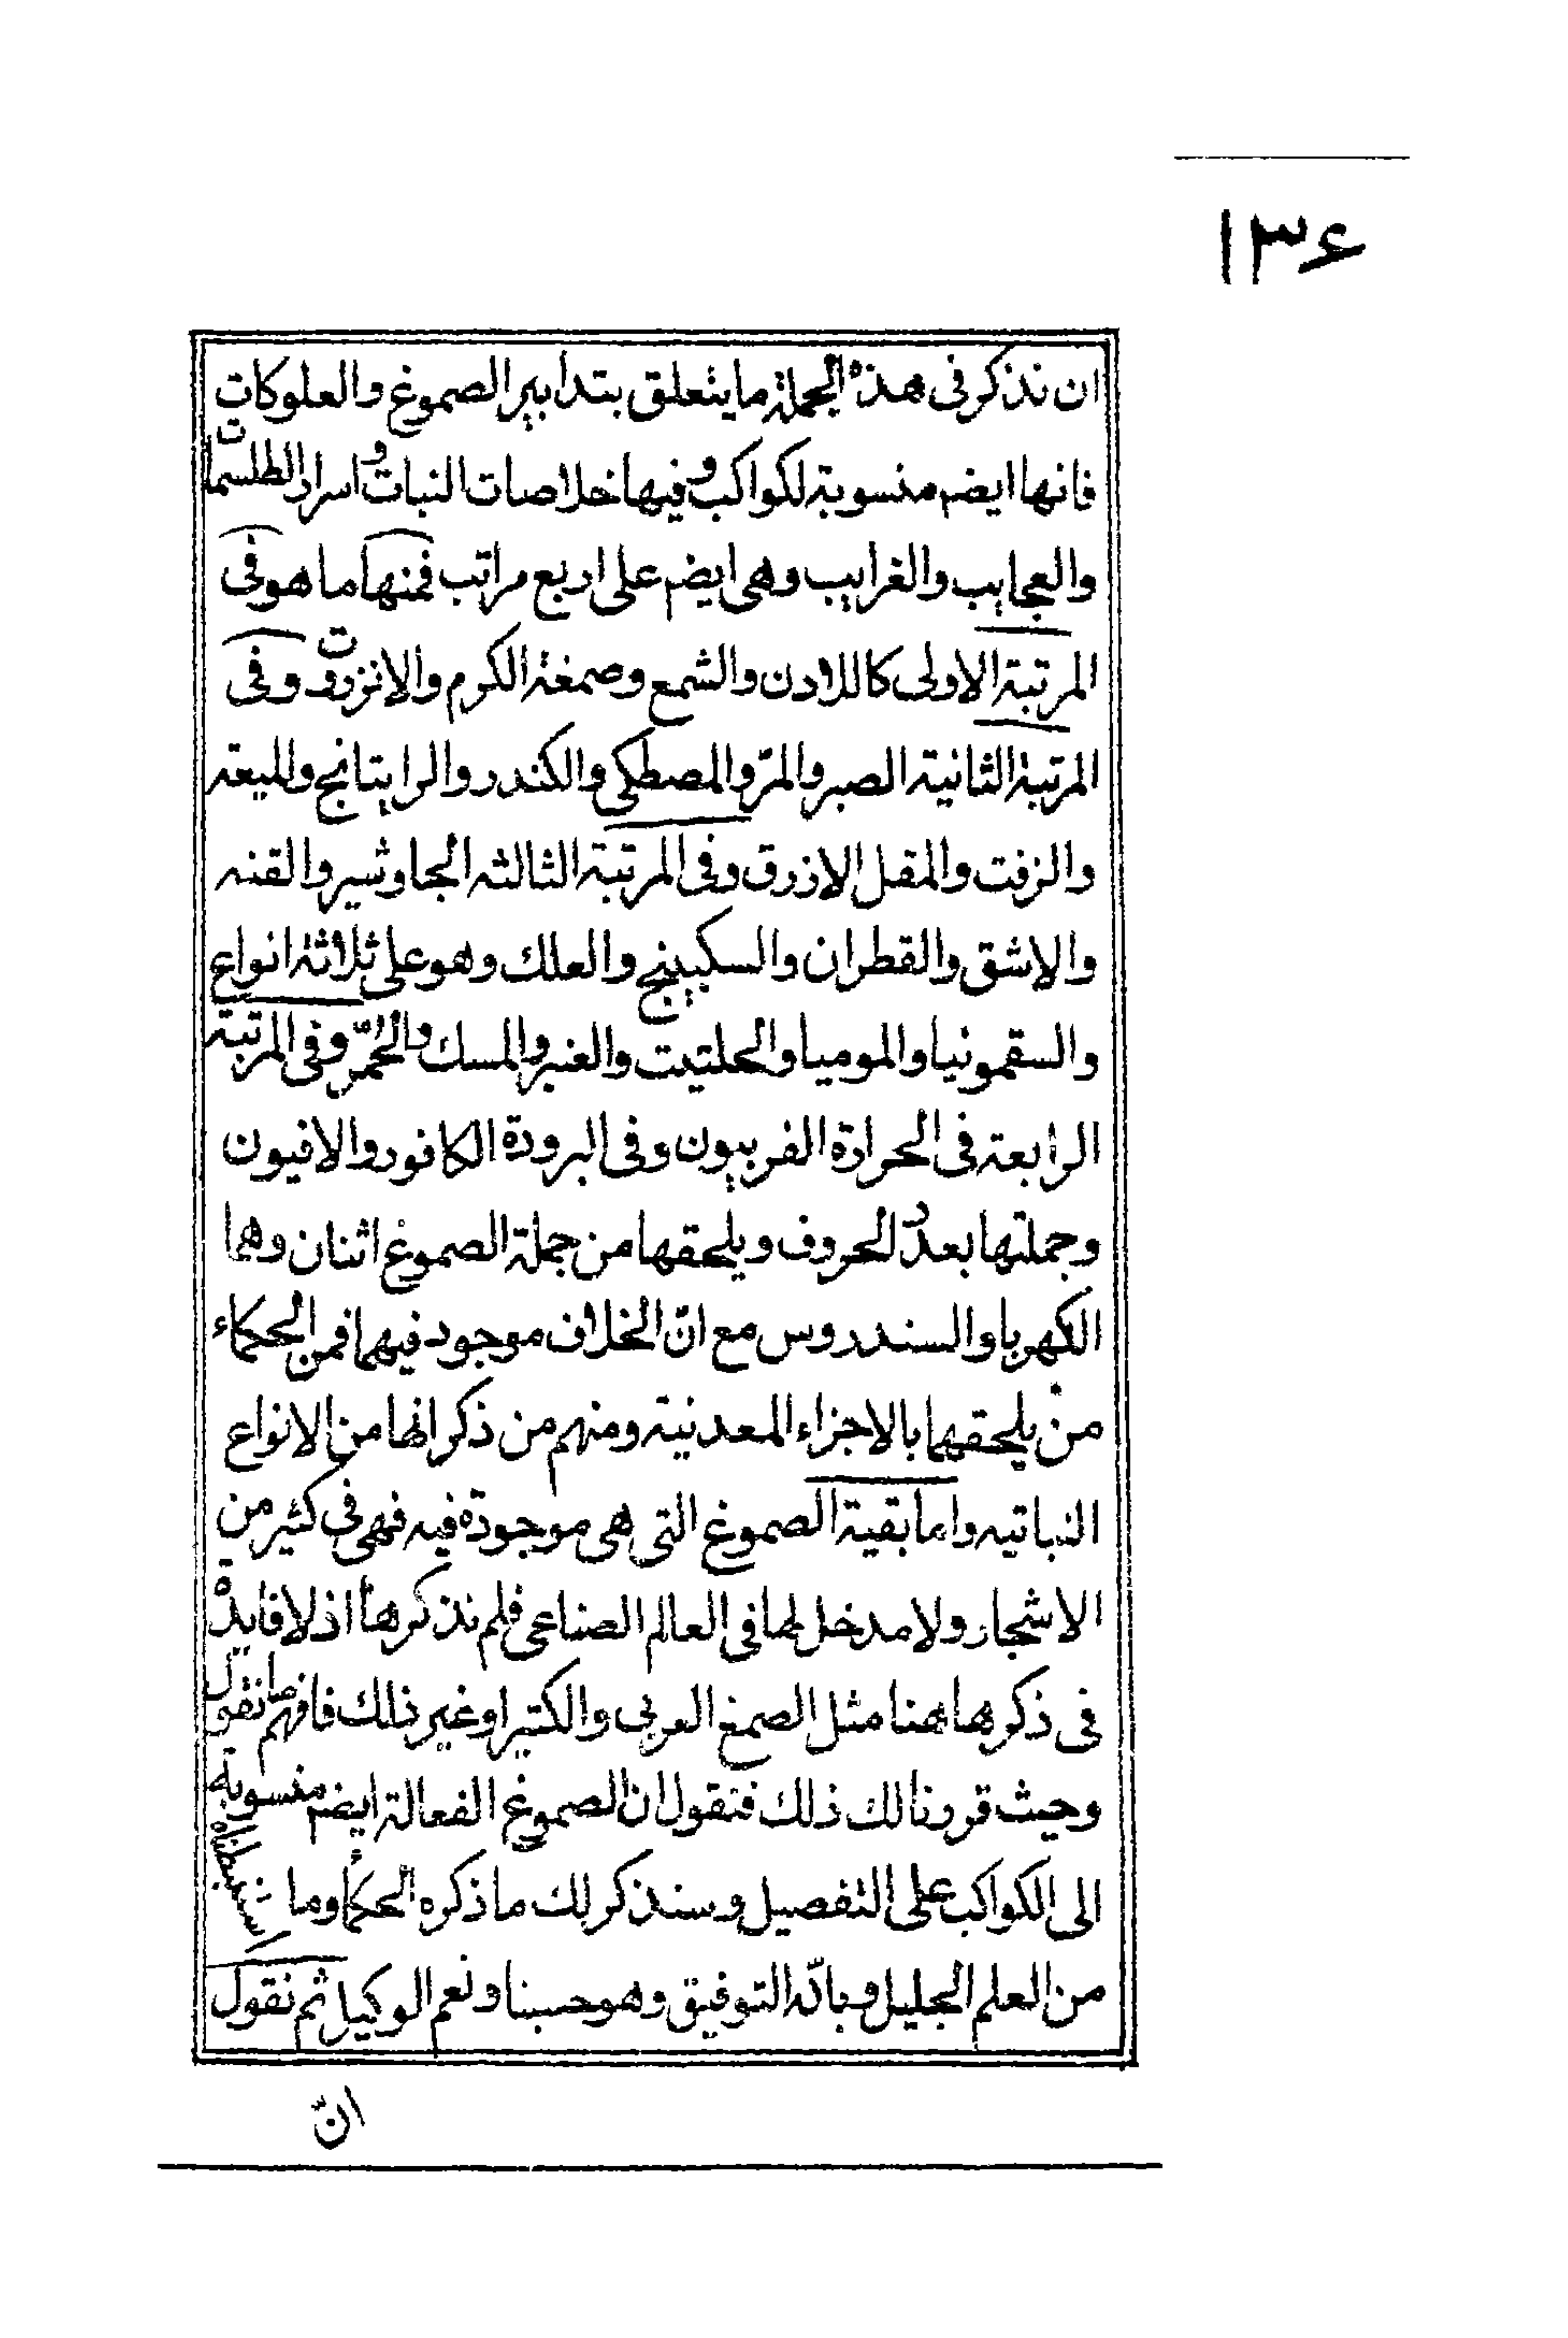 ١٣۶
ان نذكر فى هذه الجملة ما يتعلق بتدابير الصموغ والعلوكات
فانها ايضم منسوبة لكواكب وفيها خلاصات النبات و اسرار الطلسمات
والعجايب والغرايب وهى ايضم على اربع مراتب فمنها ما هو فى
المرتبة الاولى كاللادن والشمع وصمغة الكرم والانزروت وفى
المرتبة الثانية الصبر والمرّ والمصطكى والكندر والراتيانج والميعة
والزفت والمقل الازرق وفى المرتبة الثالثه الجاوشير والقنه
والاشق والقطران والسكبينج والعلك وهو على ثلاثة انواع
والسقمونيا والموميا والحلتيت والعنبر والمسك والخمر وفى المرتبة
الرابعة فى الحرارة الفربيون وفى البرودة الكافور والافيون
وجملتها بعدد الحروف ويلحقها من جملة الصموغ اثنان وهما
الكهربا والسندروس مع انّ الخلاف موجود فيهما فمن الحكماء
من يلحقهما بالاجزاء المعدنية ومنهم من ذكر انها من الانواع
النباتيه واما بقية الصموغ التى هى موجودة فيه فهى فى كثير من
الاشجار ولا مدخل لها فى العالم الصناعى فلم نذكرها اذ لا فايدة
فى ذكرها هنا مثل الصمغ العربى والكتيرا وغير ذلك فافهم ما نقول
وحيث قررنا لك ذلك فنقول ان الصموغ الفعالة ايضم منسوبة
الى الكواكب على التفصيل وسنذكر لك ما ذكره الحكماء وما
من العلم الجليل وبالله التوفيق وهو حسبنا ونعم الوكيل ثم نقول
انّ